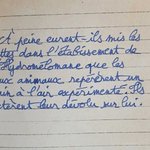 A peine eurent-ils mis les
dans l'établissement de
Hydromelomane que les
animaux repérèrent un
à l'air expérimenté. Ils
jetèrent leur dévolu sur lui.